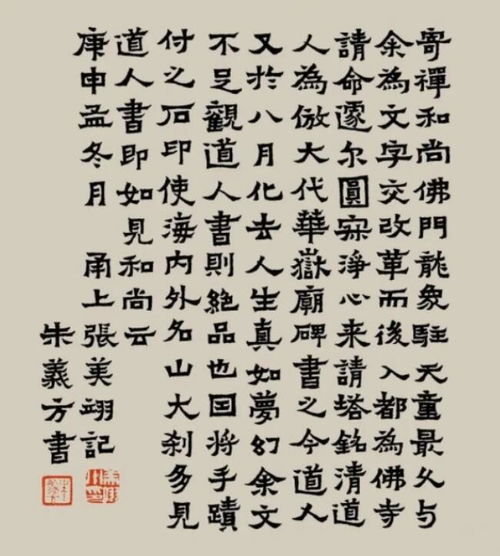 寄禪和尚佛門龍象駐天童最久与
余為文字交改革而後入都為佛寺
請命遽尔圓寂淨心来請塔銘清道
人為倣大代華嶽廟碑書之今道人
又於八月化去人生真如夢幻余文
不足觀道人書則絕品也囙將手蹟
付之石印使海内外名山大刹多見
道人書即如見和尚云
庚申孟冬月 甬上張美翊記
朱義方書